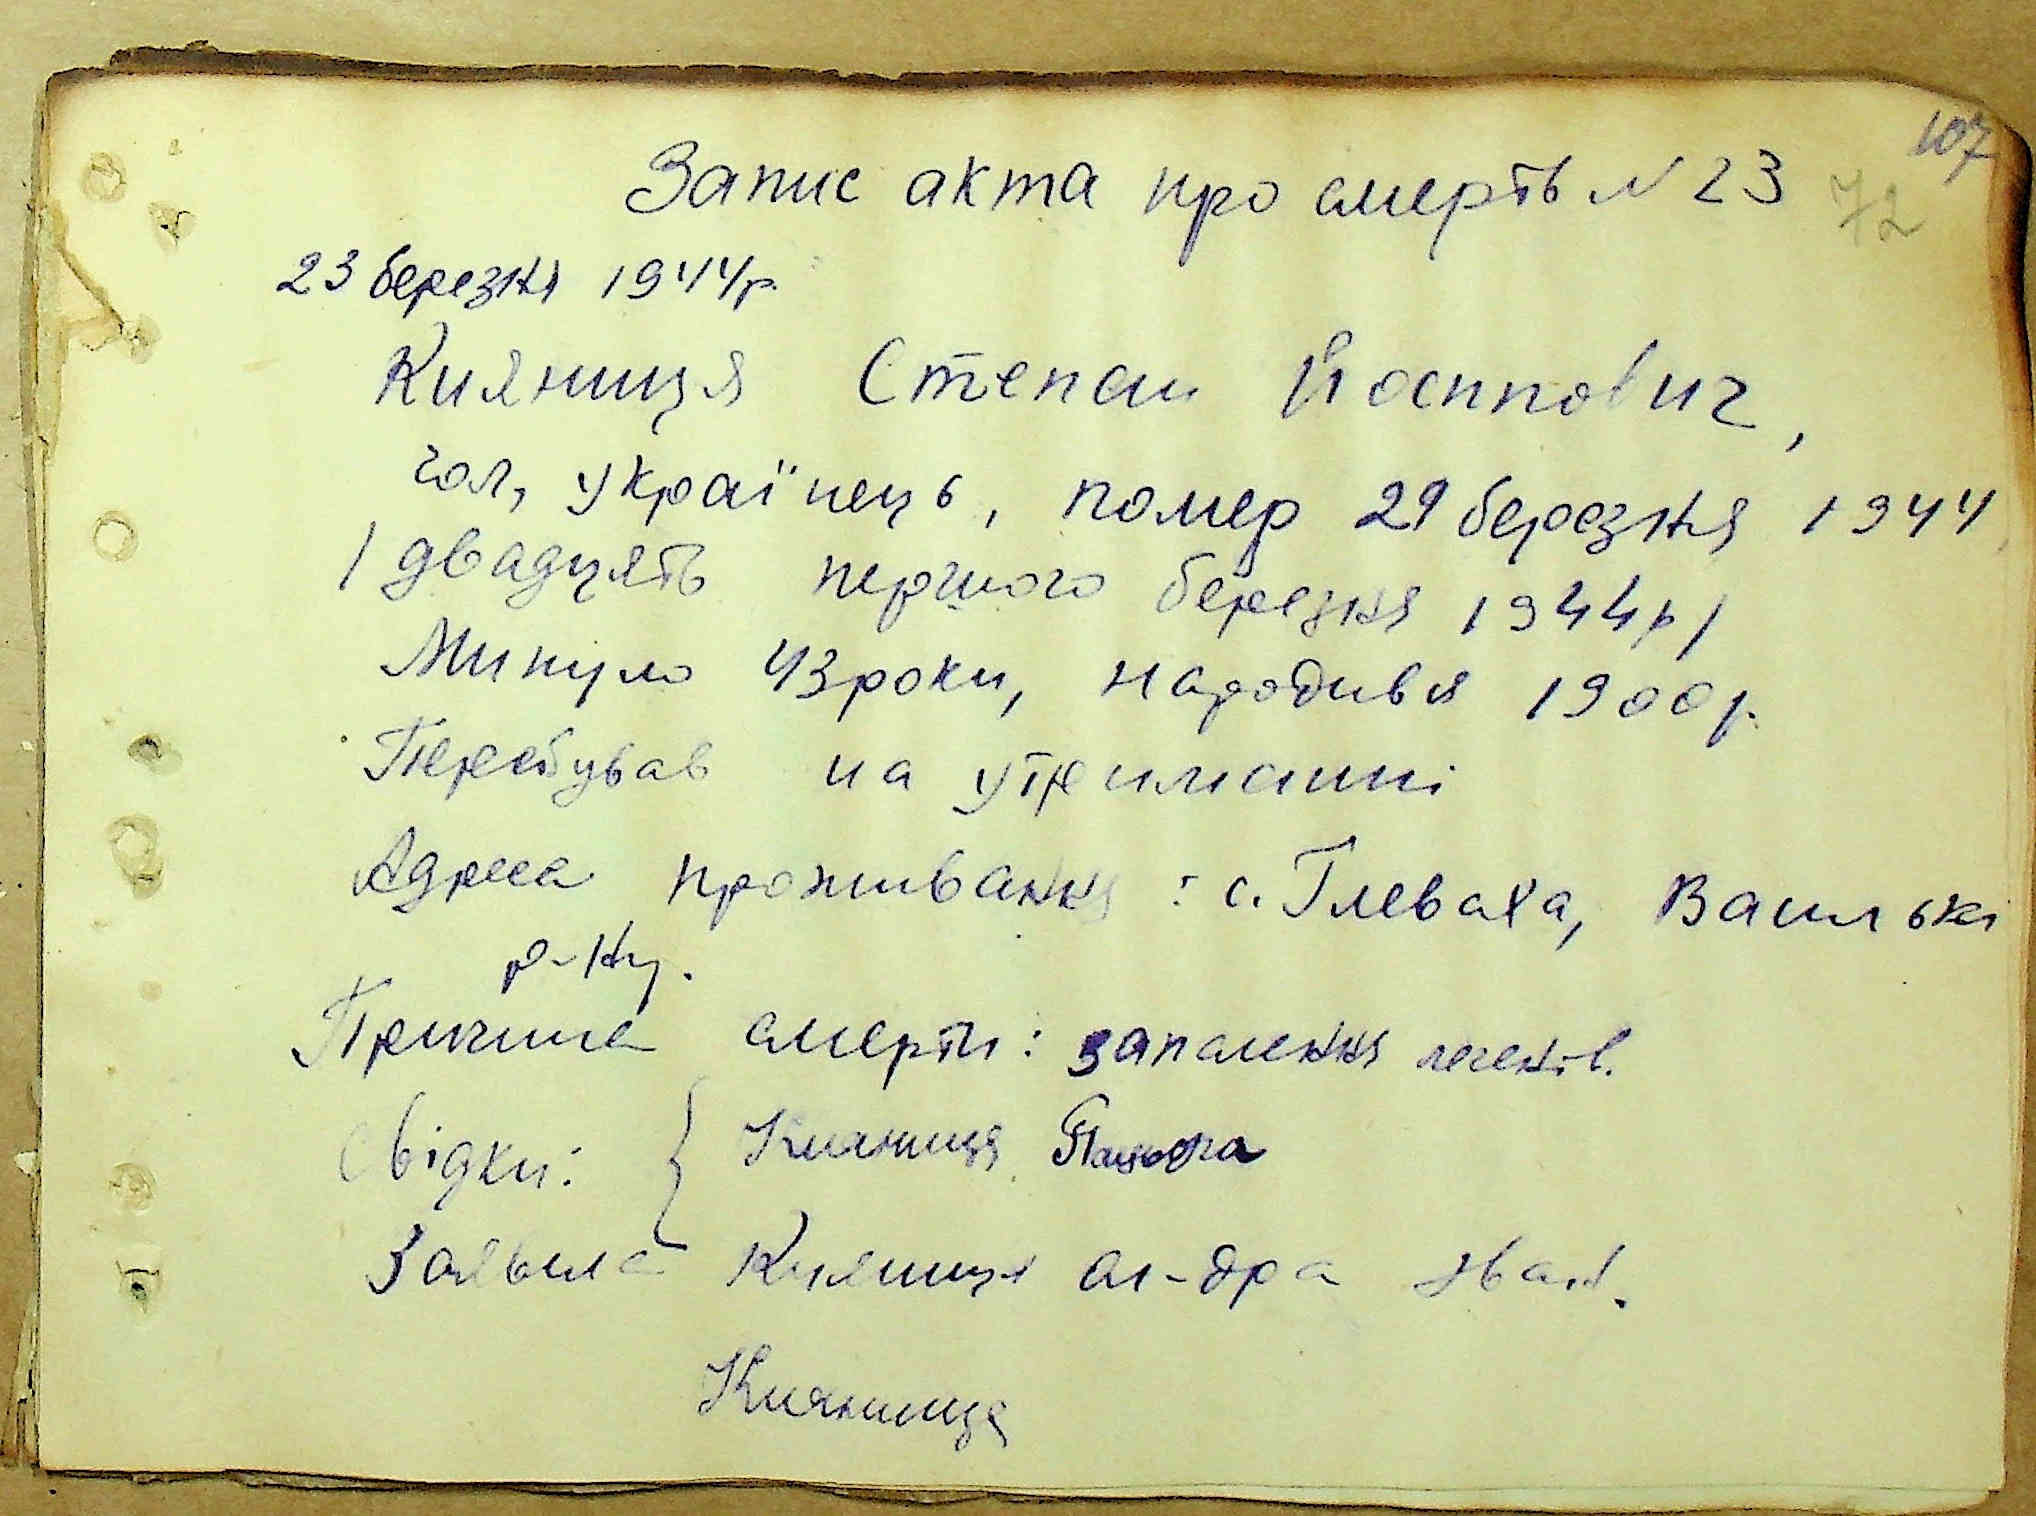 107
Запис акта про смерть N 23
72
23 березня 1944р.
Кияниця Степан Йосипович,
чол, українець, помер 21 березня 1944
/ двадцять першого березня 1944р /
Минуло 43 роки, народився 1900р.
Перебував на утриманні
Адреса проживання : с. Глеваха, Васильків
р-ну.
Причина смерти : запалення легенів.
Свідки: Кияниця
Заявила Кияниця ол-дра Іван.
Кияниця